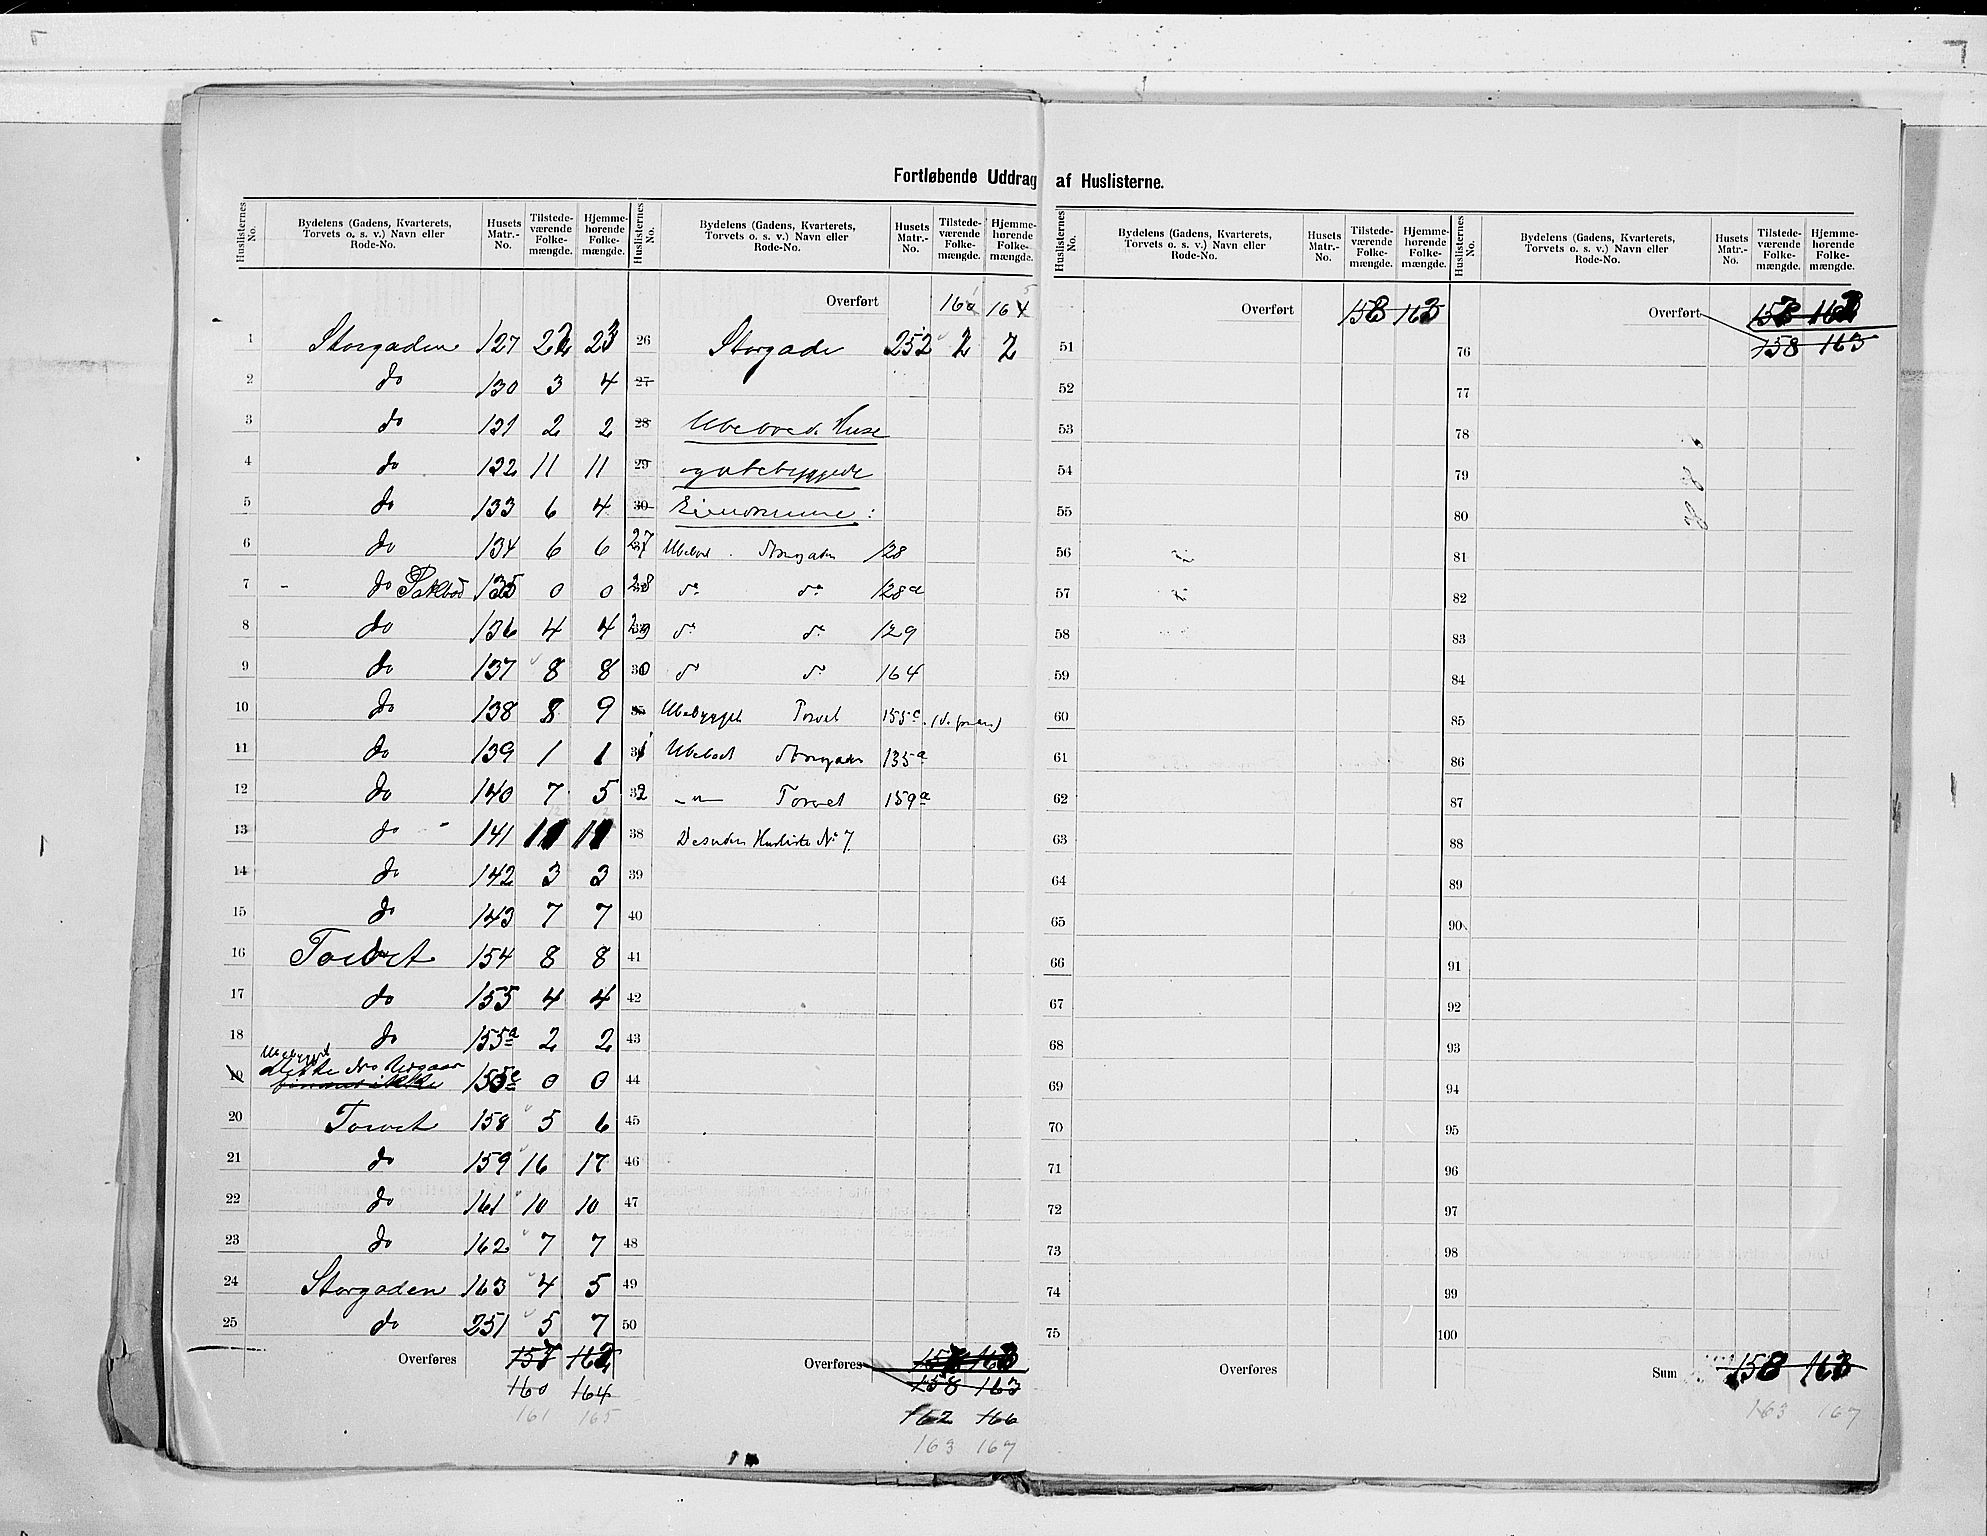 Fortløbende Uddrag af Huslisterne.
Huslisternes No. | Bydelens (Gadens, Kvarterets, Torvets o. s. v.) Navn eller Rode-No. | Husets Matr.-No. | Tilstedeværende Folkemængde. | Hjemmehørende Folkemængde.
1 Storgaden 127 22 23
2 do 130 3 4
3 do 131 2 2
4 do 132 11 11
5 do 133 6 4
6 do 134 6 6
7 - do Pakbod 135 0 0
8 do 136 4 4
9 do 137 8 8
10 do 138 8 9
11 do 139 1 1
12 do 140 7 5
13 do 141 11 11
14 do 142 3 3
15 do 143 7 7
16 Torvet 154 8 8
17 do 155 4 4
18 do 155a 2 2
Ubebygget
19 155c 0 0
20 Torvet 158 5 6
21 do 159 16 17
22 do 161 10 10
23 do 162 7 7
24 Storgaden 163 4 5
25 do 251 5 7
Overføres 157 162
160 164
161 165
Huslisternes No. | Bydelens (Gadens, Kvarterets, Torvets o. s. v.) Navn eller Rode-No. | Husets Matr.-No. | Tilstedeværende Folkemængde. | Hjemmehørende Folkemængde.
Overført 160 164
26 Storgade 252 2 2
27
28 Ubeboede Huse
29 og ubebyggede
30 Eiendomme:
27 Ubeboet Storgaden 128
28 do do 128a
29 do do 129
30 do do 164
35 Ubebygget Torvet 155c
31 Ubeboet Storgaden 135a
32 -"- Torvet 159a
38 Desuden Husliste No 7
39
40
41
42
43
44
45
46
47
48
49
50
Overføres 158 163
158 163
162 166
163 167
Huslisternes No. | Bydelens (Gadens, Kvarterets, Torvets o. s. v.) Navn eller Rode-No. | Husets Matr.-No. | Tilstedeværende Folkemængde. | Hjemmehørende Folkemængde.
Overført 158 163
51
52
53
54
55
56
57
58
59
60
61
62
63
64
65
66
67
68
69
70
71
72
73
74
75
Overføres
Huslisternes No. | Bydelens (Gadens, Kvarterets, Torvets o. s. v.) Navn eller Rode-No. | Husets Matr.-No. | Tilstedeværende Folkemængde. | Hjemmehørende Folkemængde.
Overført
158 163
76
77
78
79
80
81
82
83
84
85
86
87
88
89
90
91
92
93
94
95
96
97
98
99
100
Sum 158 163
163 167